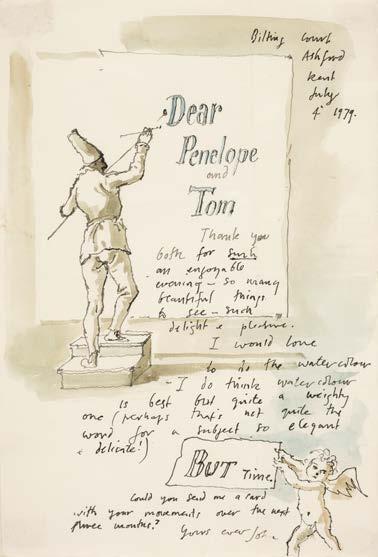 Bilting Court
Ashford
Kent
July
4 1979.
Dear
Penelope
and
Tom
Thank you
both for such
an enjoyable
evening – so many
beautiful things
to see – such
delight & pleasure.
I would love
to do the watercolour
– I do think watercolour
is best but quite a weighty
one (perhaps that's not quite the
word for a subject so elegant
& delicate!)
BUT Time.
Could you send me a card
with your movements over the next
three months?
Yours ever